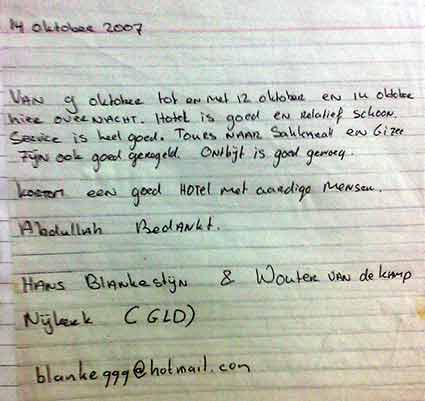 14 oktober 2007
Van 9 oktober tot en met 12 oktober en 14 oktober
hier overnacht. Hotel is goed en relatief schoon.
Service is heel goed. Tours naar Sakkenah en Gizee
zijn ook goed geregeld. Ontbijt is goed genoeg.
Kortom een goed Hotel met aardige mensen.
Abdullah Bedankt.
Hans Blankestijn & Wouter van de Kamp
Nijkerk (GLD)
blankeggg@hotmail.com